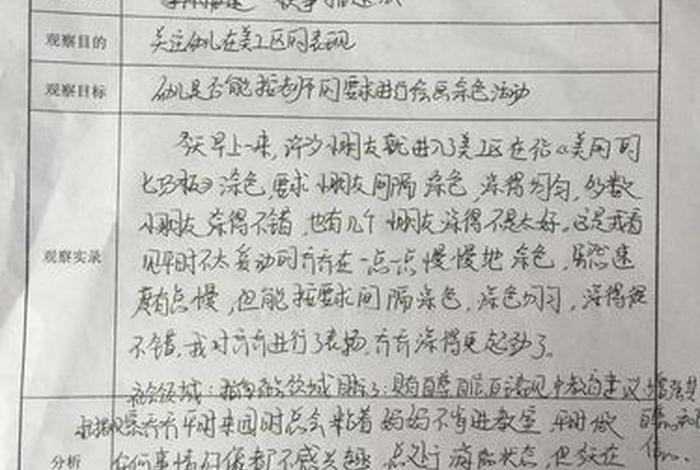 观察目的 关注幼儿在美工区的表现
观察目标 幼儿是否能按老师的要求进行绘画涂色活动
今天早上一来,许多小朋友就进入了美工区在给《美丽的
七巧板》涂色,要求小朋友间隔涂色,涂得均匀,多数
小朋友涂得不错,也有几个小朋友涂得不是太好。这是我看
观察实录 见平时不太爱动的齐齐在一点一点慢慢地涂色,虽然速
度有点慢,但能按要求间隔涂色,涂色均匀,涂得很
不错,我对齐齐进行了表扬,齐齐涂得更起劲了。
社会领域:指南社会领域目标3:具有自尊自信自主表现中教育建议
齐齐平时来园时总会粘着妈妈不肯进教室 平时做
分析 任何事情们像都不感兴趣 总处于游离状态,但